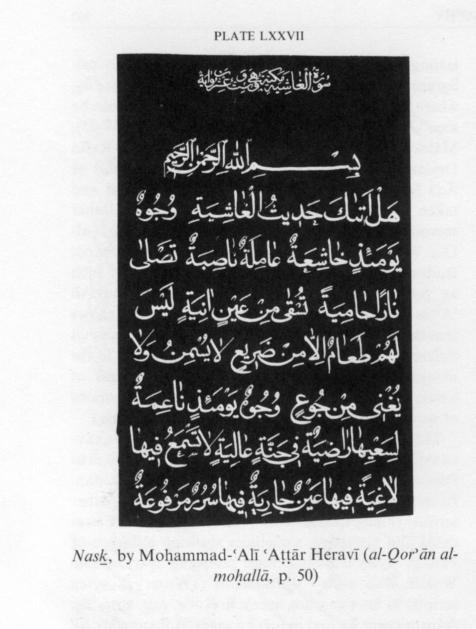 PLATE LXXVII
سورة الغاشية مكية وهي ست عشرون اية
بسم الله الرحمن الرحيم
هَلْ أَتٰكَ حَدِيثُ الْغَاشِيَةِ وُجُوهٌ
يَوْمَئِذٍ خَاشِعَةٌ عَامِلَةٌ نَاصِبَةٌ تَصْلٰى
نَارًا حَامِيَةً تُسْقٰى مِنْ عَيْنٍ اٰنِيَةٍ لَيْسَ
لَهُمْ طَعَامٌ اِلَّا مِنْ ضَرِيعٍ لَا يُسْمِنُ وَلَا
يُغْنِي مِنْ جُوعٍ وُجُوهٌ يَوْمَئِذٍ نَاعِمَةٌ
لِسَعْيِهَا رَاضِيَةٌ فِي جَنَّةٍ عَالِيَةٍ لَا تَسْمَعُ فِيهَا
لَاغِيَةً فِيهَا عَيْنٌ جَارِيَةٌ فِيهَا سُرُرٌ مَرْفُوعَةٌ
Nask, by Moḥammad-ʿAlī ʿAṭṭār Heravī (al-Qorʾān al-
moḥallā, p. 50)